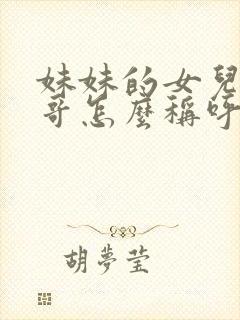 妹妹的女兒
哥怎麼稱呼
胡夢瑩